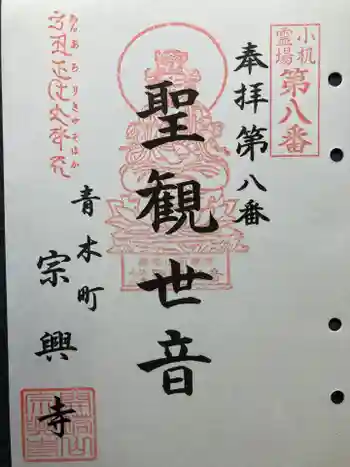 小机
霊場
第八番
奉拝第八番
聖観世音
青木町
宗興寺
おんあろりきゃそばか